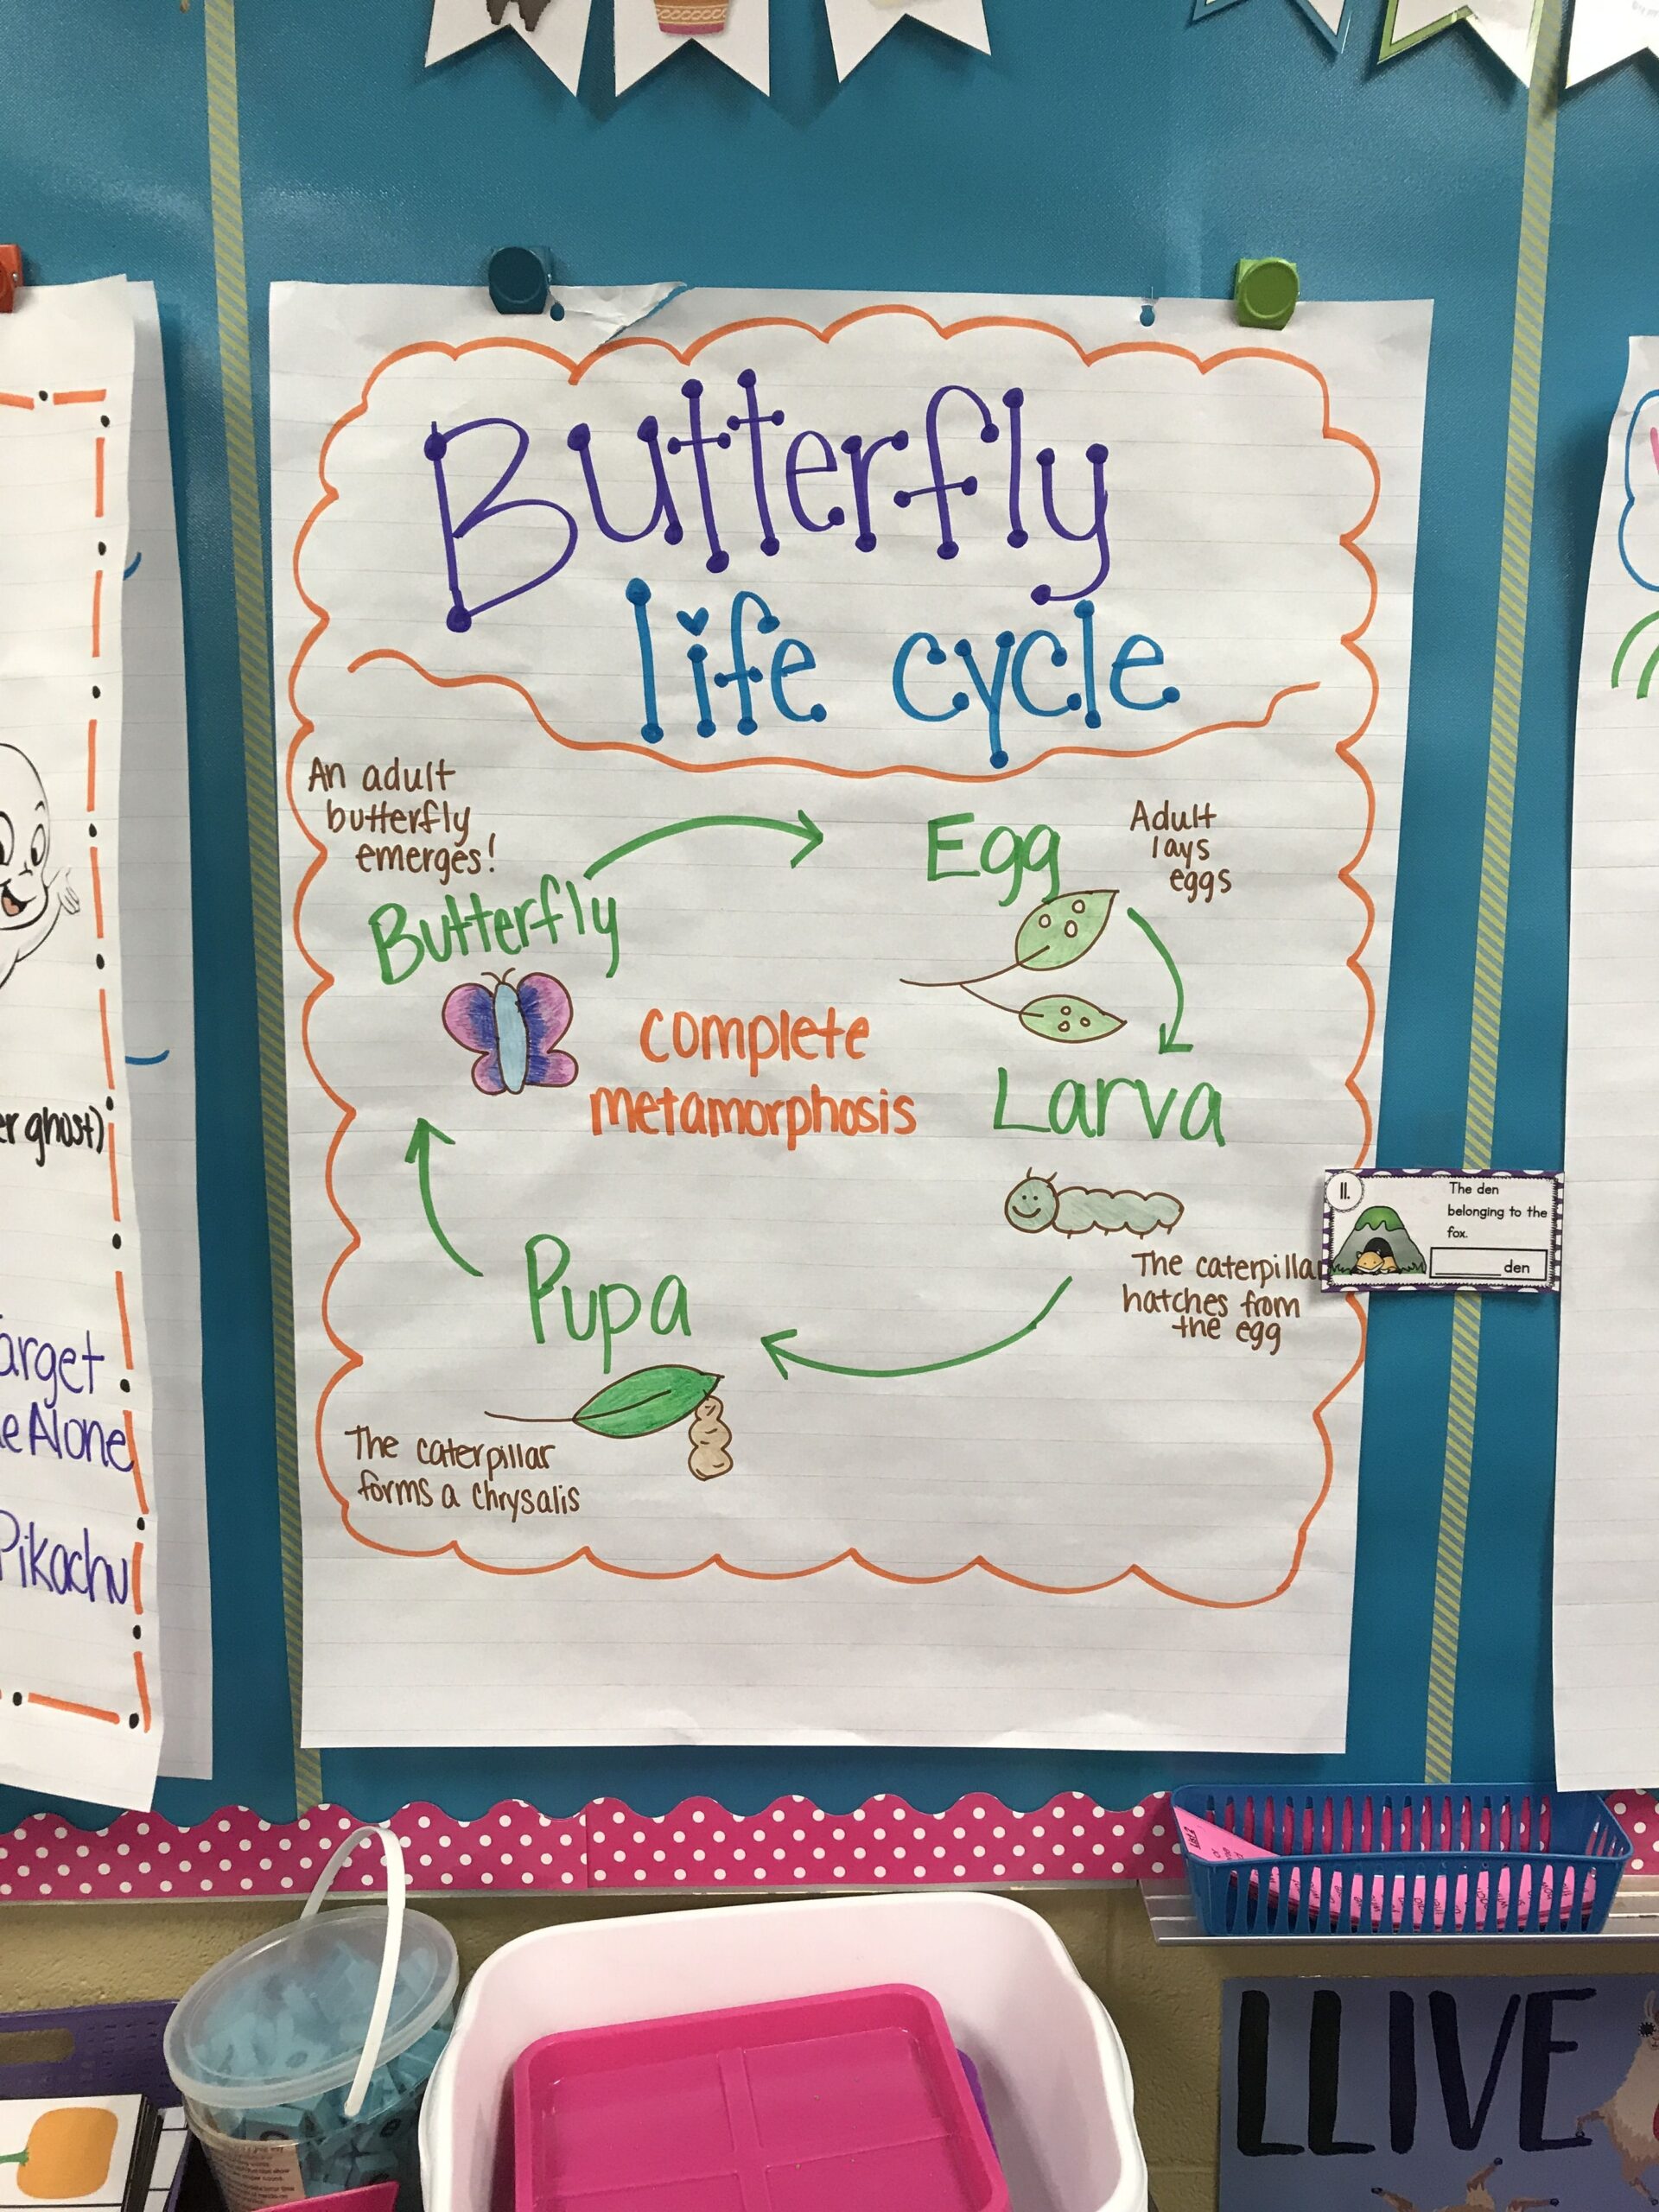 Butterfly
life cycle
An adult
butterfly
emerges!
Butterfly
Egg
Adult
lays
eggs
complete
metamorphosis
Larva
The caterpillar
hatches from
the egg
Pupa
The caterpillar
forms a chrysalis
11.
The den
belonging to the
fox.
______ den
ghost)
Alone
Pikachu
LLIVE